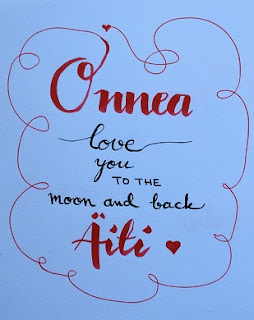 Onnea
love
you
TO THE
moon and back
Äiti